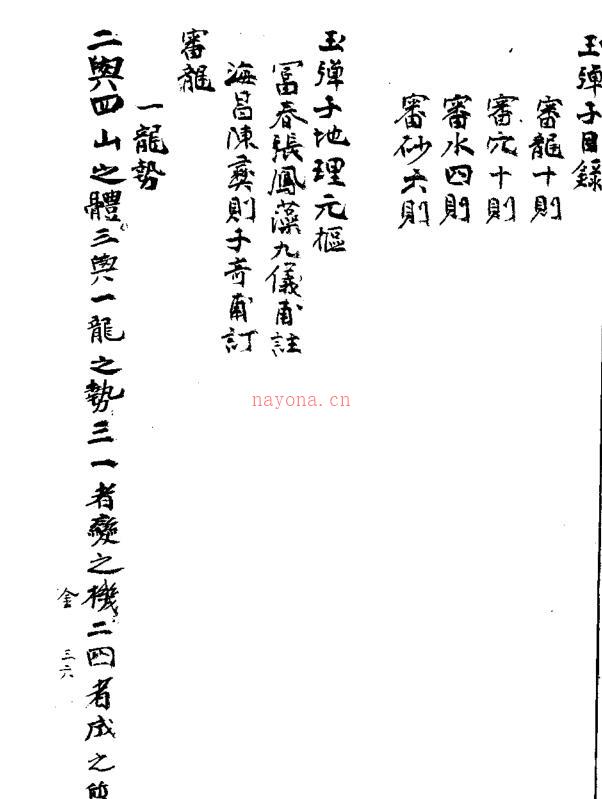 玉彈子目錄
審龍十則
審穴十則
審水四則
審砂六則
玉彈子地理元樞
富春張鳳藻九儀甫註
海昌陳彝則子奇甫訂
審龍
一龍勢
二與四山之體三與一龍之勢三一者變之機二四者成之
金 三六
nayona.cn